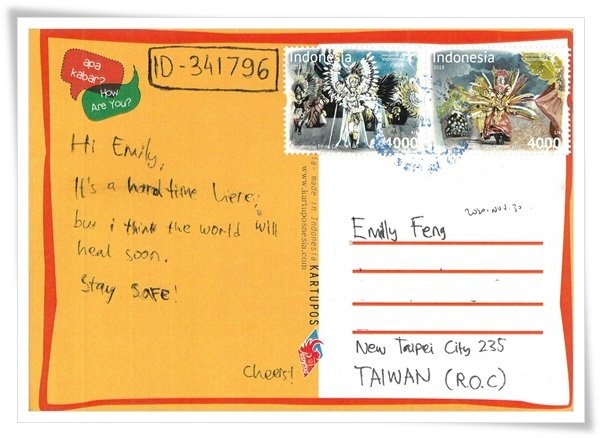 apa
kabar?
How
Are You?
ID-341796
Indonesia
2018
4000
Indonesia
2018
4000
Hi Emily,
It's a hard time here,
but i think the world will
heal soon.
Stay SAFE!
Cheers!
made in Indonesia KARTUPOS
www.kartuposnesia.com
2020. Nov. 30
Emily Feng
New Taipei City 235
TAIWAN (R.O.C)